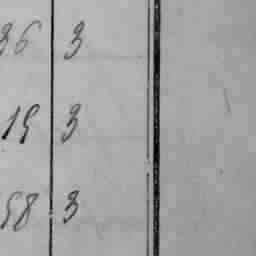 36 3
19 3
58 3